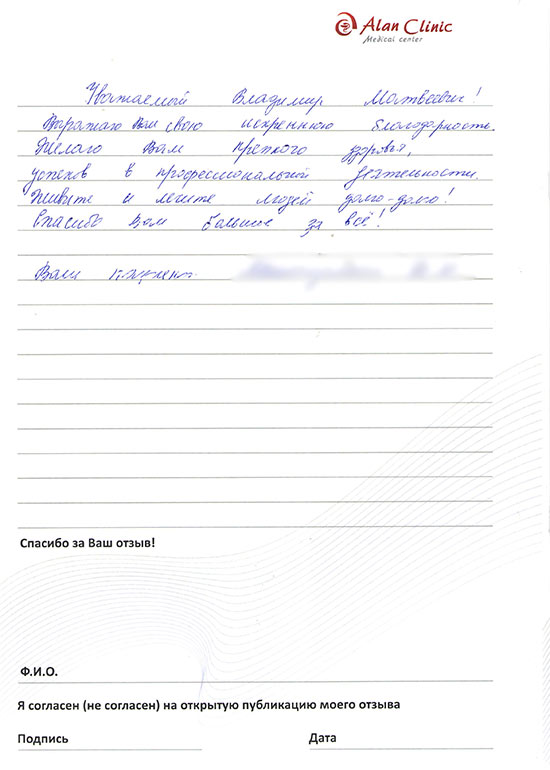 Alan Clinic
Medical center
Уважаемый Владимир Матвеевич!
Выражаю Вам свою искреннюю благодарность.
Желаю Вам крепкого здоровья,
успехов в профессиональной деятельности.
Живите и лечите людей долго-долго!
Спасибо Вам большое за всё!
Ваш пациент
Спасибо за Ваш отзыв!
Ф.И.О.
Я согласен (не согласен) на открытую публикацию моего отзыва
Подпись Дата